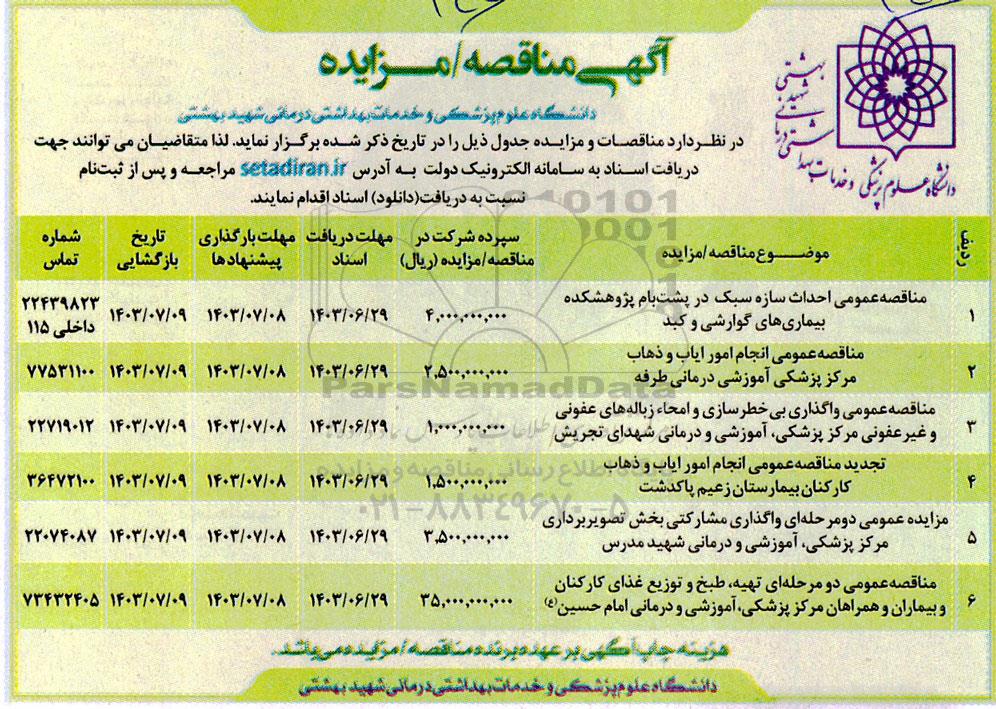 آگهی مناقصه/مزایده
دانشگاه علوم پزشکی و خدمات بهداشتی درمانی شهید بهشتی
در نظر دارد مناقصات و مزایده جدول ذیل را در تاریخ ذکر شده برگزار نماید. لذا متقاضیان می توانند جهت
دریافت اسناد به سامانه الکترونیک دولت به آدرس setadiran.ir مراجعه و پس از ثبت‌نام
نسبت به دریافت(دانلود) اسناد اقدام نمایند.
دانشگاه علوم پزشکی و خدمات بهداشتی درمانی شهید بهشتی
ردیف موضوع مناقصه/مزایده سپرده شرکت در مناقصه/مزایده (ریال) مهلت دریافت اسناد مهلت بارگذاری پیشنهادها تاریخ بازگشایی شماره تماس
۱ مناقصه عمومی احداث سازه سبک در پشت‌بام پژوهشکده
بیماری‌های گوارشی و کبد ۴,۰۰۰,۰۰۰,۰۰۰ ۱۴۰۳/۰۶/۲۹ ۱۴۰۳/۰۷/۰۸ ۱۴۰۳/۰۷/۰۹ ۲۲۴۳۹۸۲۳ داخلی ۱۱۵
۲ مناقصه عمومی انجام امور ایاب و ذهاب
مرکز پزشکی آموزشی درمانی طرفه ۲,۵۰۰,۰۰۰,۰۰۰ ۱۴۰۳/۰۶/۲۹ ۱۴۰۳/۰۷/۰۸ ۱۴۰۳/۰۷/۰۹ ۷۷۵۳۱۱۰۰
۳ مناقصه عمومی واگذاری بی خطرسازی و امحاء زباله‌های عفونی
و غیرعفونی مرکز پزشکی، آموزشی و درمانی شهدای تجریش ۱,۰۰۰,۰۰۰,۰۰۰ ۱۴۰۳/۰۶/۲۹ ۱۴۰۳/۰۷/۰۸ ۱۴۰۳/۰۷/۰۹ ۲۲۷۱۹۰۱۲
۴ تجدید مناقصه عمومی انجام امور ایاب و ذهاب
کارکنان بیمارستان زعیم پاکدشت ۱,۵۰۰,۰۰۰,۰۰۰ ۱۴۰۳/۰۶/۲۹ ۱۴۰۳/۰۷/۰۸ ۱۴۰۳/۰۷/۰۹ ۳۶۴۷۲۱۰۰
۵ مزایده عمومی دومرحله‌ای واگذاری مشارکتی بخش تصویربرداری
مرکز پزشکی، آموزشی و درمانی شهید مدرس ۳,۵۰۰,۰۰۰,۰۰۰ ۱۴۰۳/۰۶/۲۹ ۱۴۰۳/۰۷/۰۸ ۱۴۰۳/۰۷/۰۹ ۲۲۰۷۴۰۸۷
۶ مناقصه عمومی دو مرحله‌ای تهیه، طبخ و توزیع غذای کارکنان
و بیماران و همراهان مرکز پزشکی، آموزشی و درمانی امام حسین(ع) ۳۵,۰۰۰,۰۰۰,۰۰۰ ۱۴۰۳/۰۶/۲۹ ۱۴۰۳/۰۷/۰۸ ۱۴۰۳/۰۷/۰۹ ۷۳۴۳۲۴۰۵
ParsNamadData
۰۲۱-۸۸۳۴۹۶۷۰-۵
هزینه چاپ آگهی بر عهده برنده مناقصه/مزایده می‌باشد.
دانشگاه علوم پزشکی و خدمات بهداشتی درمانی شهید بهشتی